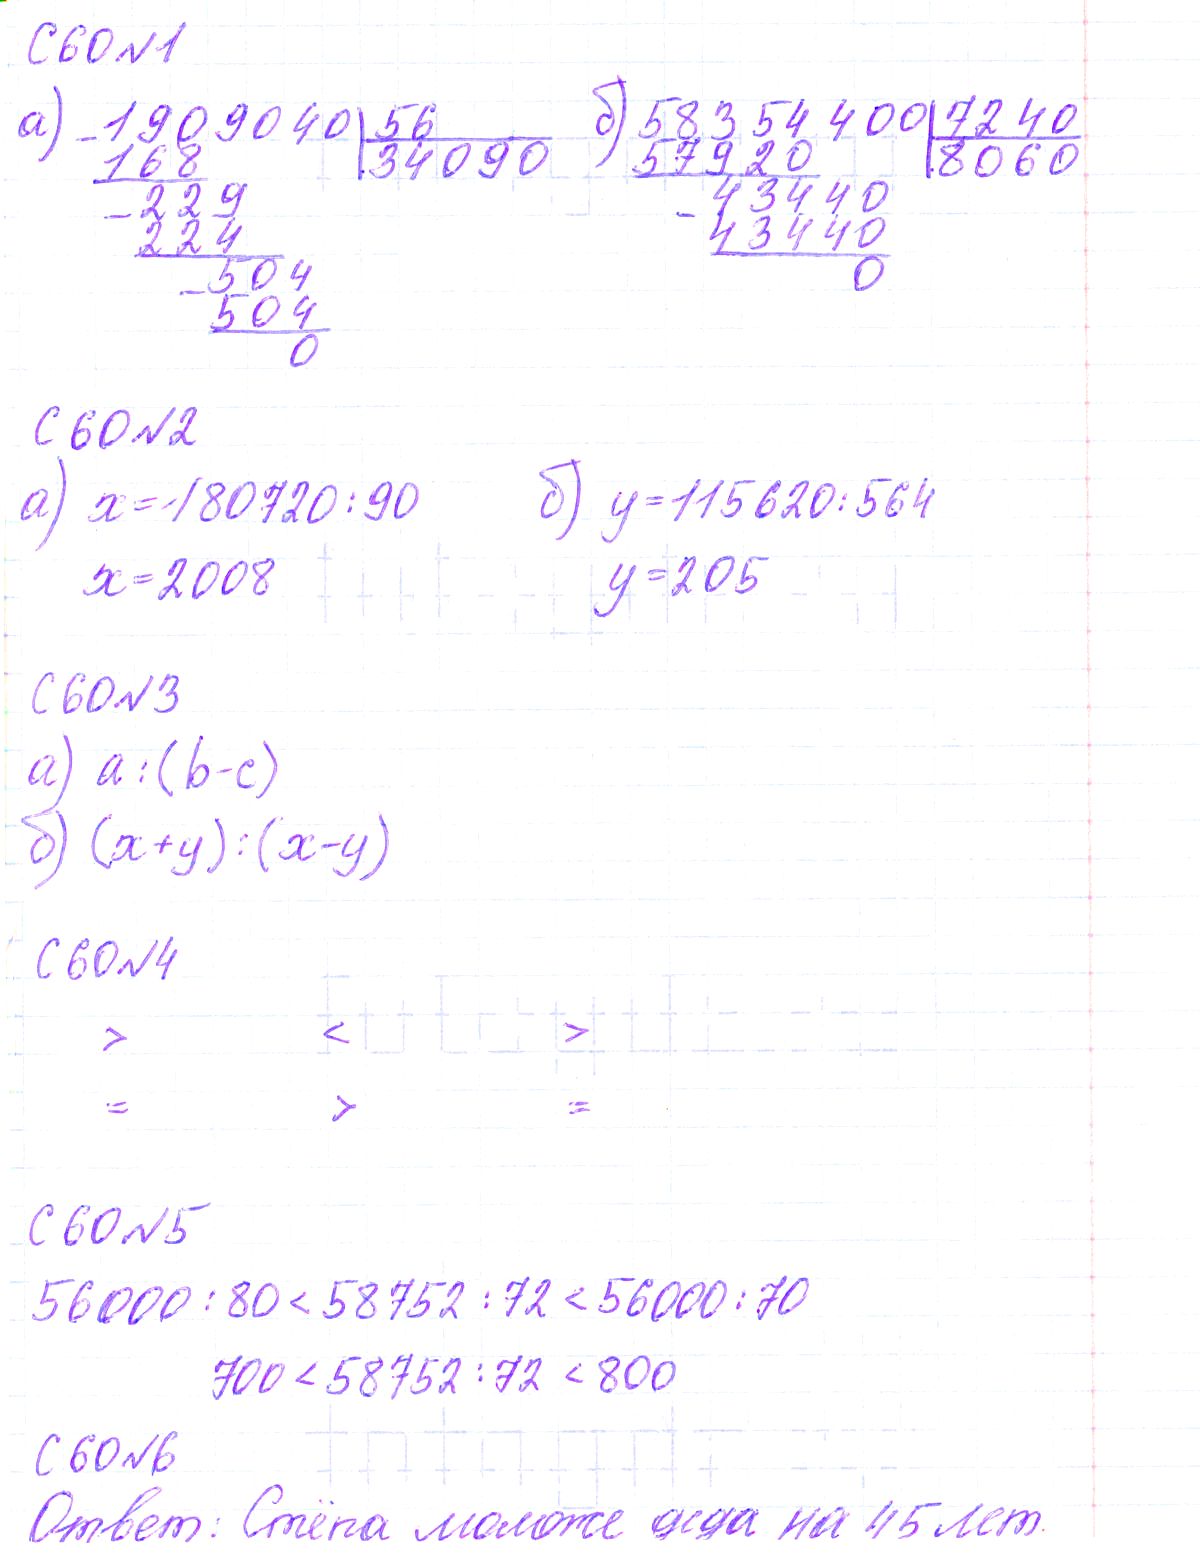 С60№1
а) -1909040 | 56 б) 58354400 | 7240
168 34090 57920 8060
-229 -43440
224 43440
-504 0
504
0
С60№2
а) x=180720:90 б) y=115620:564
x=2008 y=205
С60№3
а) a:(b-c)
б) (x+y):(x-y)
С60№4
> < >
= > =
С60№5
56000:80<58752:72<56000:70
700<58752:72<800
С60№6
Ответ: Стёпа моложе деда на 45 лет.